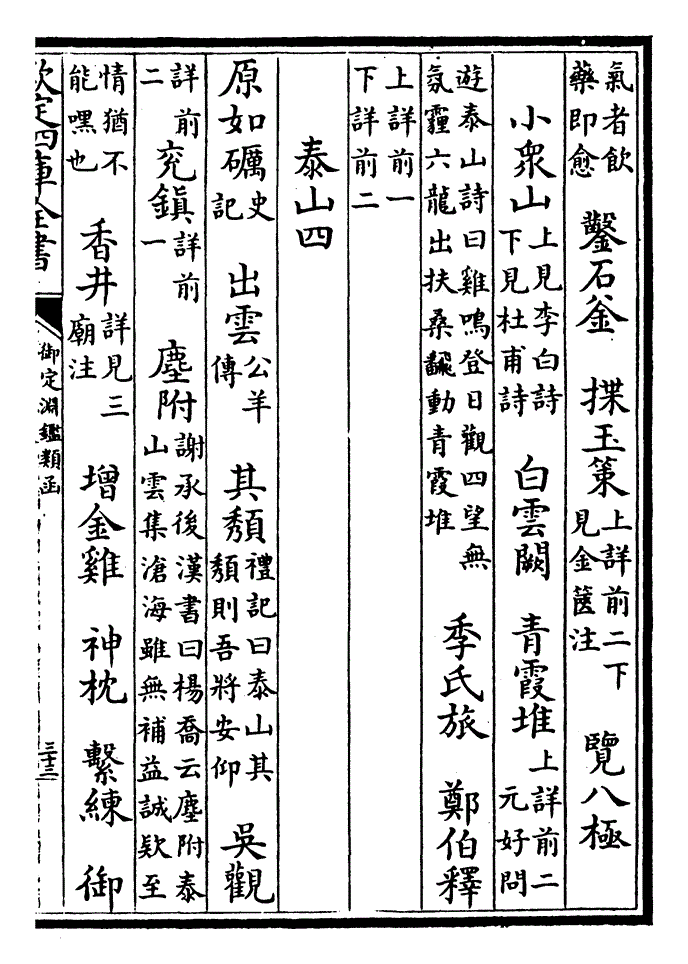 氣者飲藥即愈 鑿石釜 揲玉策上詳前二下見金篋注 覽八極
小衆山上見李白詩下見杜甫詩 白雲闕 青霞堆上詳前二元好問
遊泰山詩曰雞鳴登日觀四望無氛霾六龍出扶桑飜動青霞堆 季氏旅 鄭伯釋
上詳前一下詳前二
泰山四
原如礪史記 出雲公羊傳 其頽禮記曰泰山其頽則吾將安仰 吳觀
詳前二 兖鎮詳前一 塵附謝承後漢書曰楊喬云塵附泰山雲集滄海雖無補益誠欵至
情猶不能嘿也 香井詳見三廟注 增金雞 神枕 繫練 御
欽定四庫全書 御定淵鑑類函 三十三